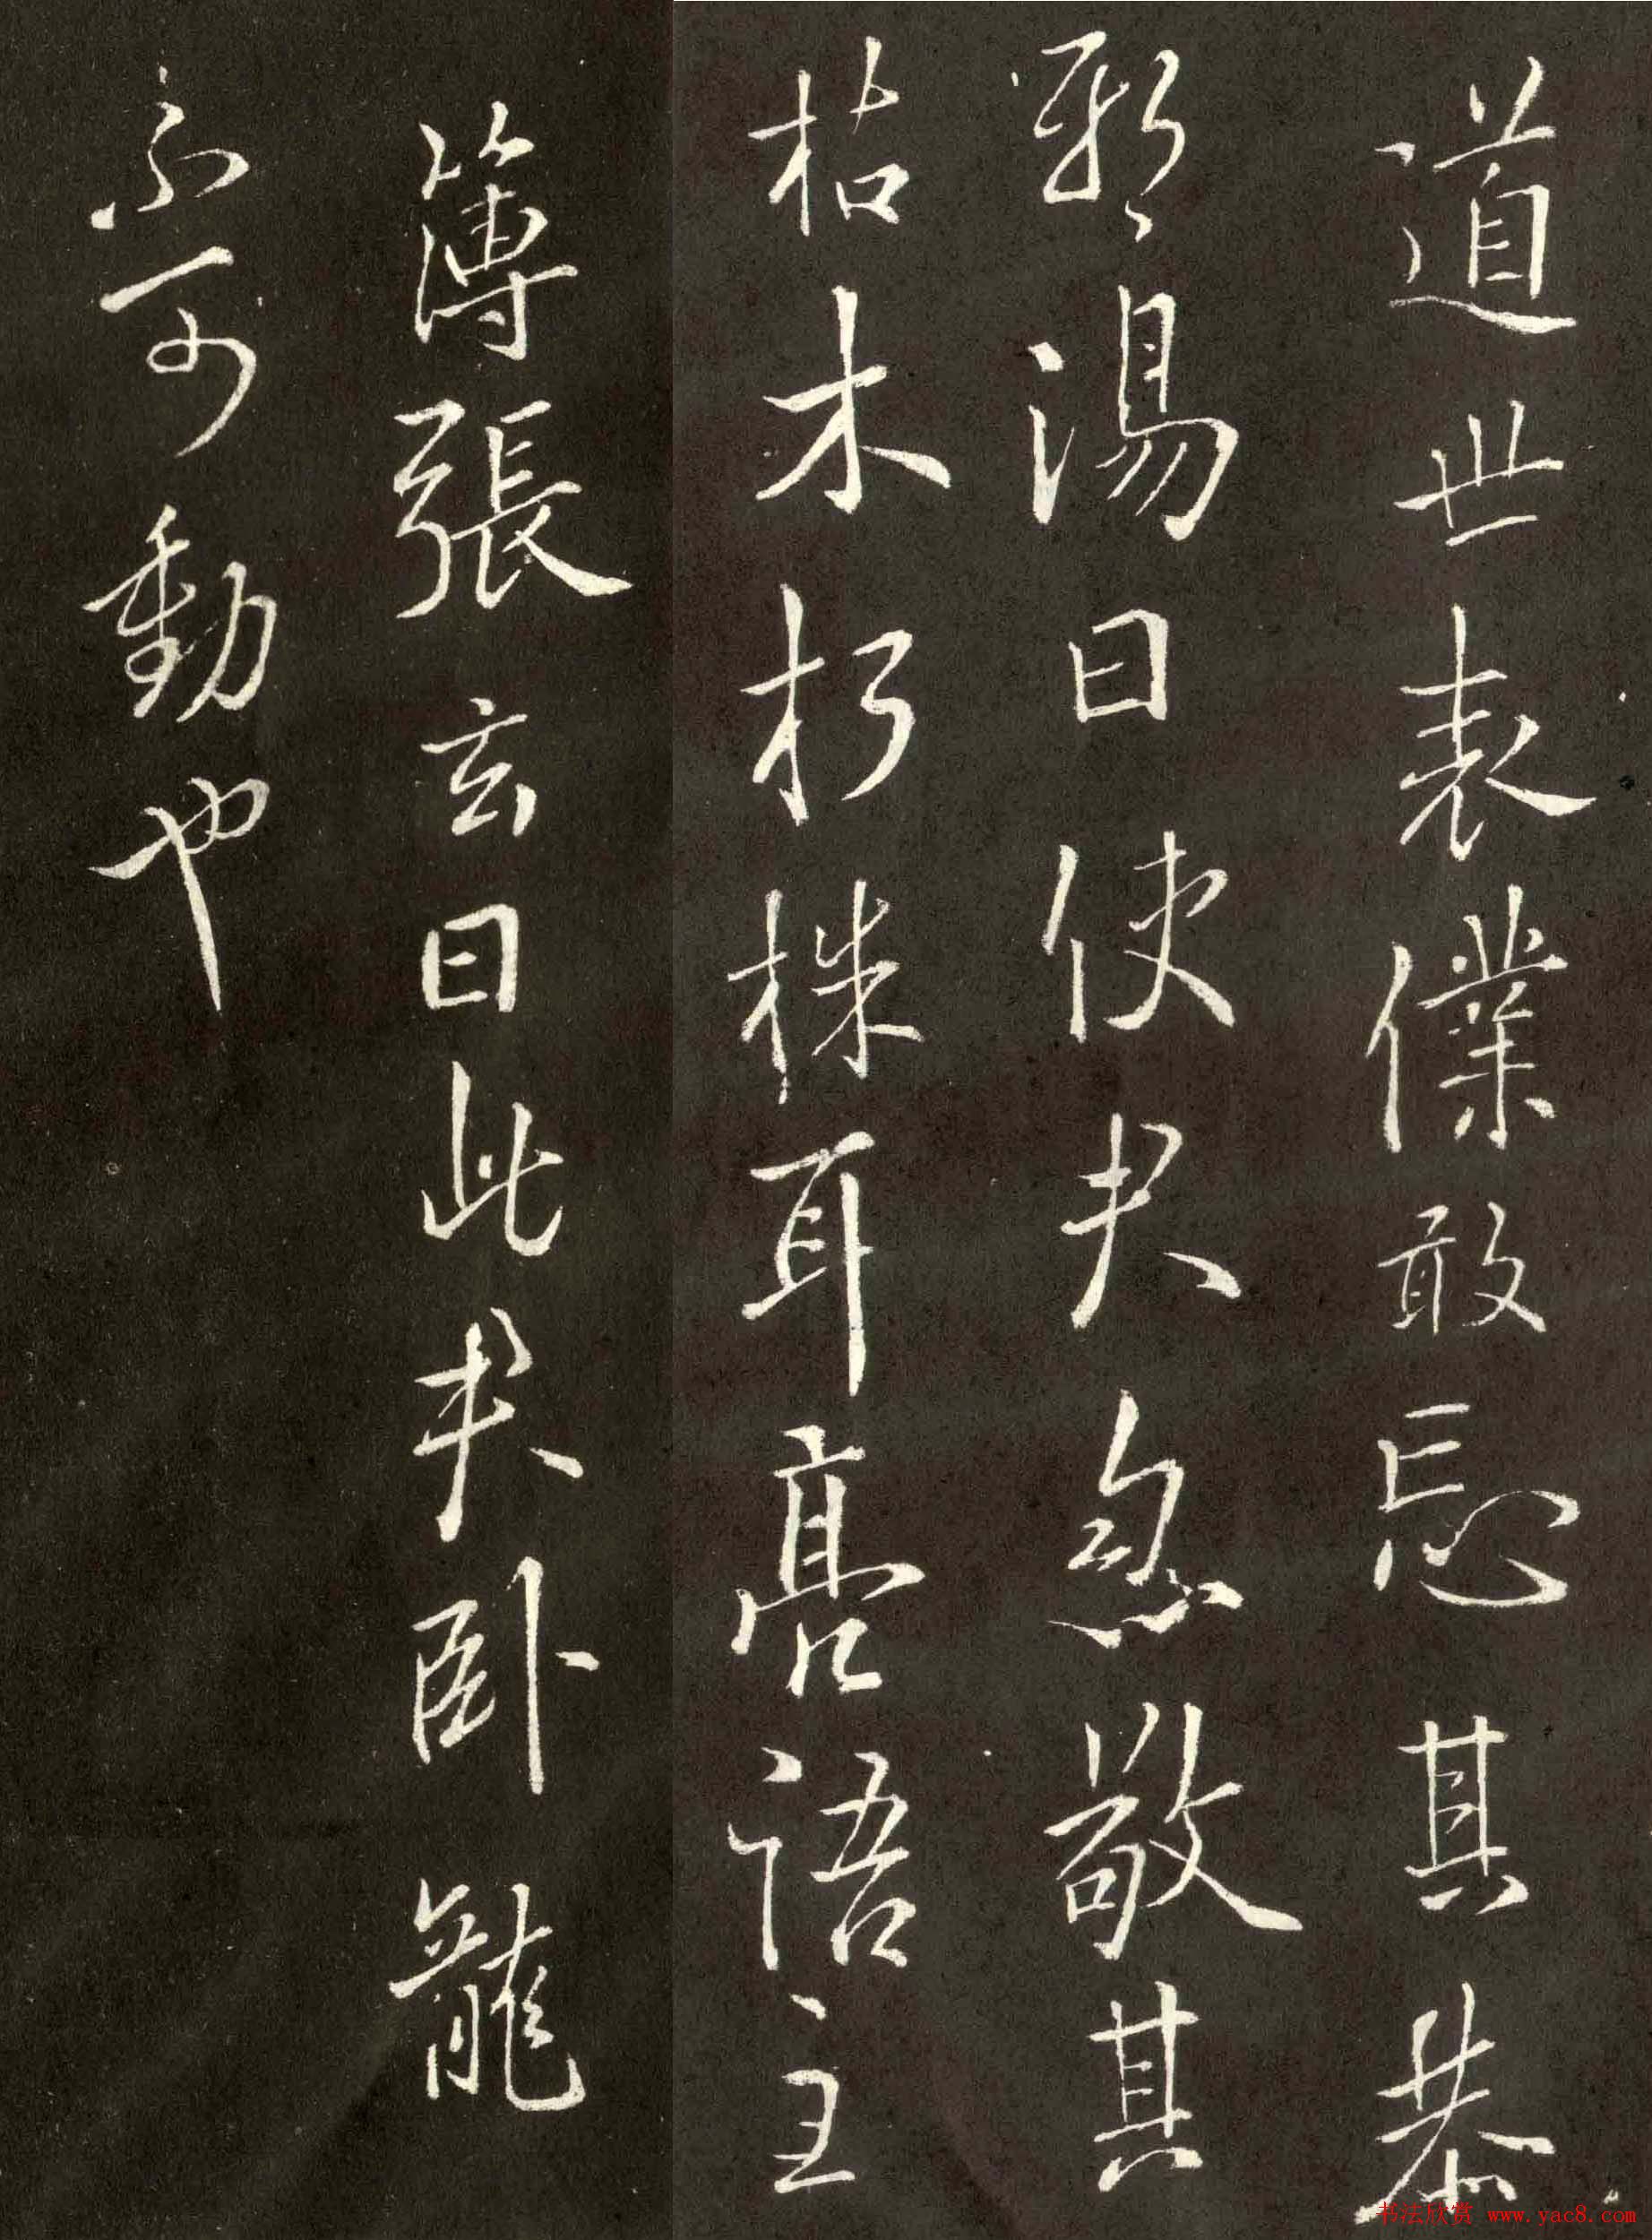 道世表僕敢忘其恭
湯曰使夫忽敬其
枯木朽株耳亮語主
簿張玄曰此夫卧龍
不可動也
书法欣赏 www.yac8.com